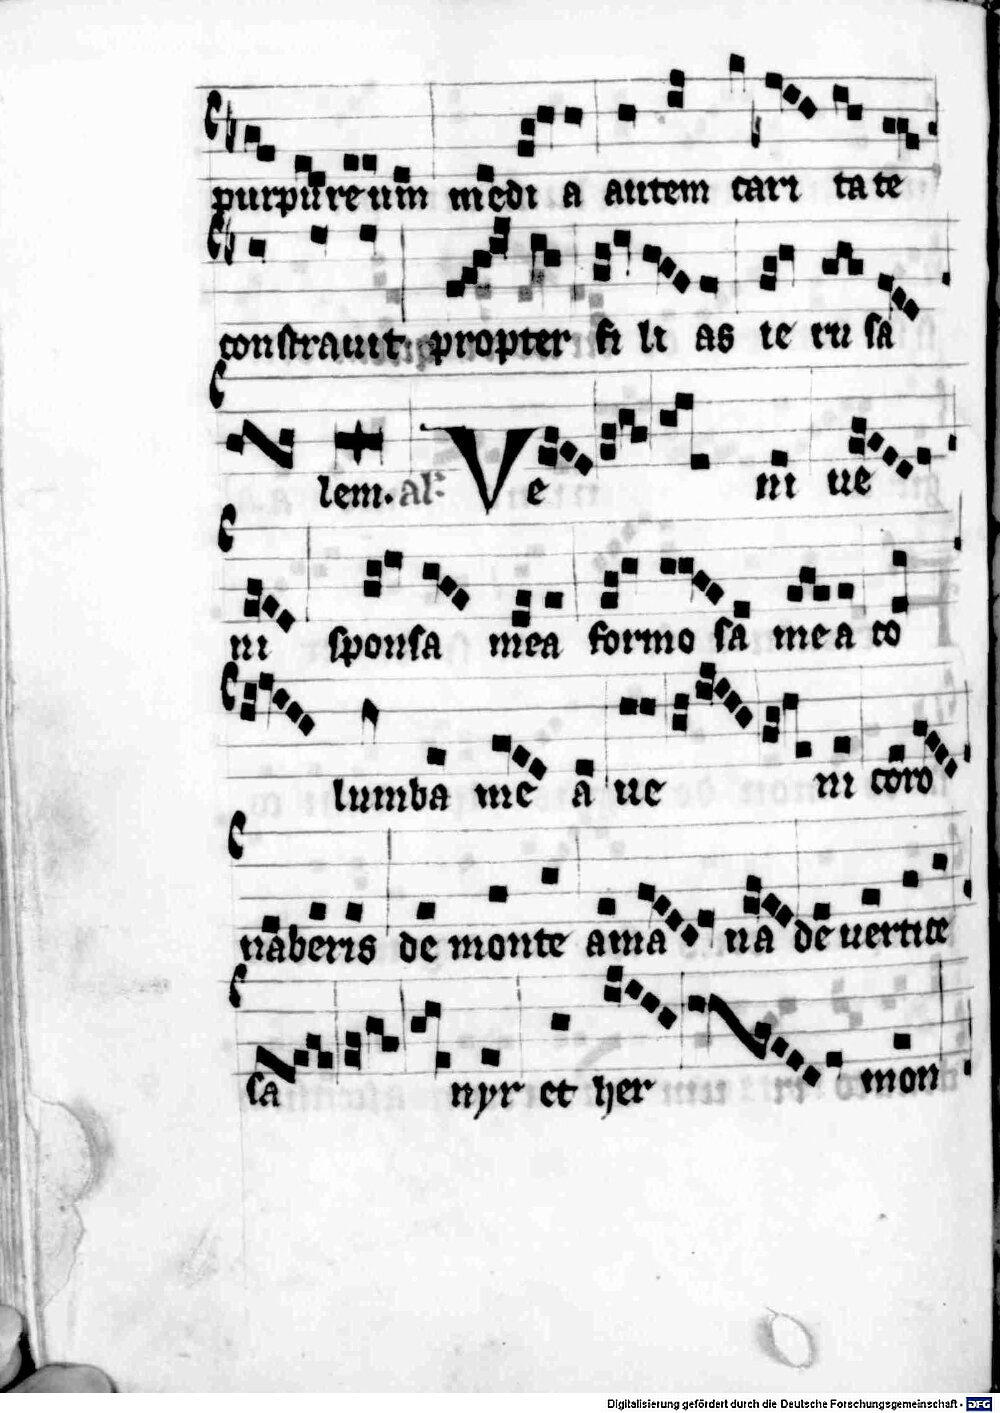 purpureum medi a autem cari ta te
constrauit propter fi li as ie ru sa
lem. al: Ve ni ue
ni sponsa mea formo sa me a co
lumba me a ue ni coro
naberis de monte ama na de uertice
sa nyr et her mon
Digitalisierung gefördert durch die Deutsche Forschungsgemeinschaft - DFG